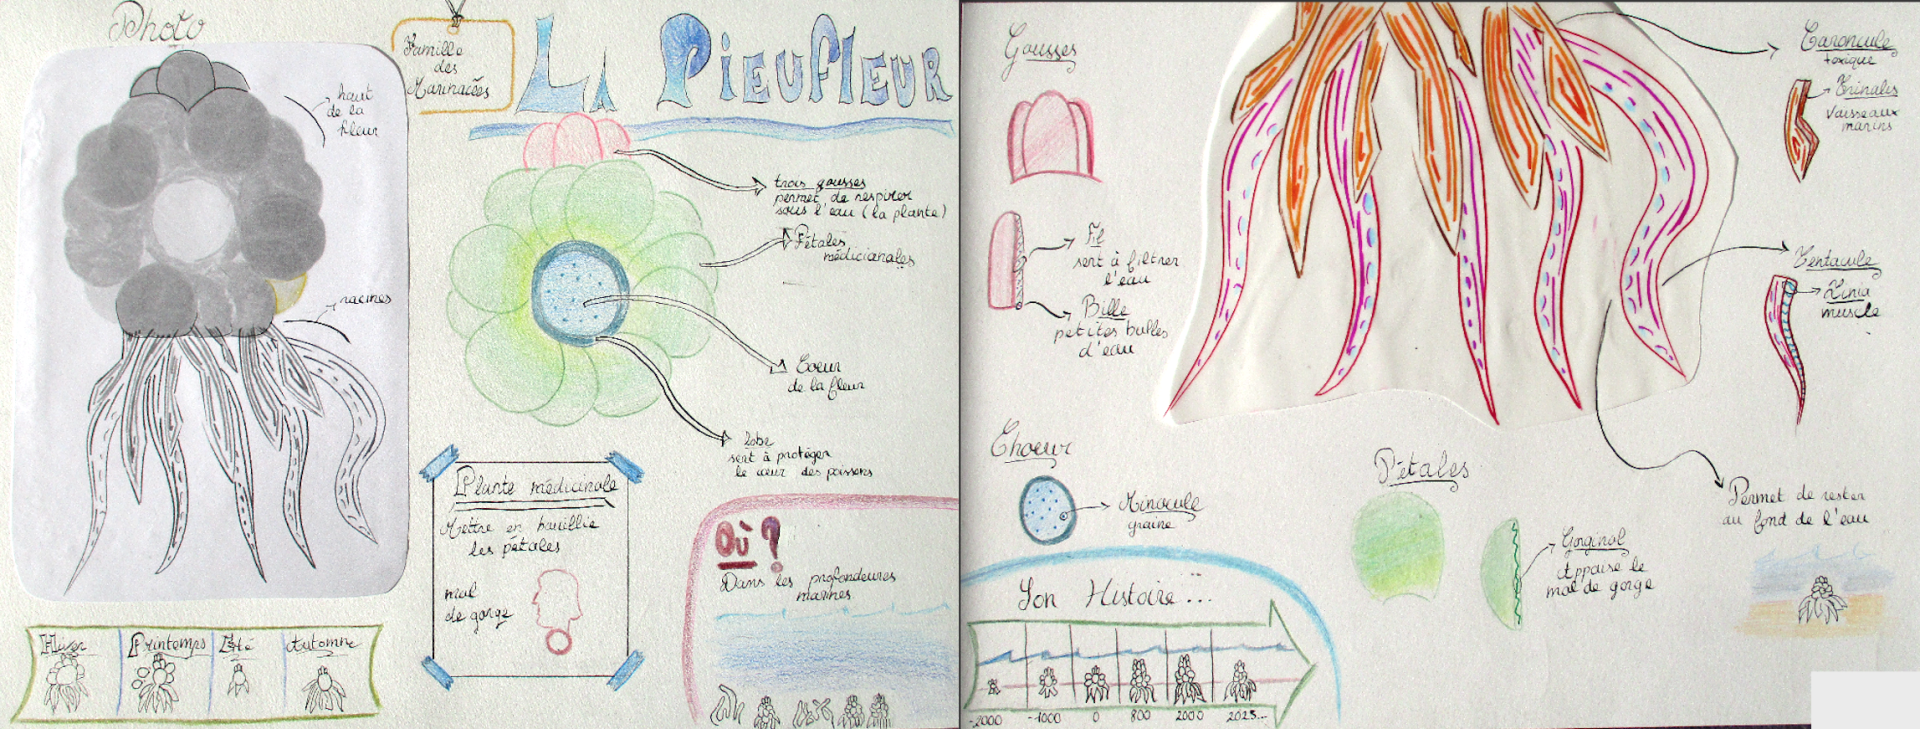 Photo
haut
de la
fleur
racines
Hiver
Printemps
Eté
Automne
Famille
des
Marinacées
LA PIEUFLEUR
trois gousses
permet de respirer
sous l'eau (la plante)
Pétales
médicianales
Coeur
de la fleur
Lobe
sert à protéger
le cœur des poissons
Plante médicinale
Mettre en bouillie
les pétales
mal
de gorge
Où ?
Dans les profondeures
marines
Gousses
Fil
sert à filtrer
l'eau
Bille
petites bulles
d'eau
Choeur
Minocule
graine
Son Histoire...
-2000
-1000
0
800
2000
2025...
Caroncule
toxique
Trinales
vaisseaux
marins
Tentacule
Linia
muscle
Pétales
Gorginol
Appaise le
mal de gorge
Permet de rester
au fond de l'eau